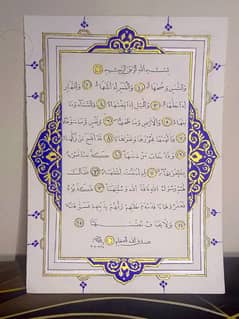 بسم الله الرحمن الرحيم
والشمس وضحها ١ والقمر إذا تلها ٢ والنهار
إذا جلها ٣ والليل إذا يغشها ٤ والسماء وما
بنها ٥ والأرض وما طحها ٦ ونفس وما سوها
٧ فألهمها فجورها وتقوها ٨ قد أفلح من زكها
٩ وقد خاب من دسها ١٠ كذبت ثمود
بطغوها ١١ إذ انبعث أشقها ١٢ فقال
لهم رسول الله ناقة الله وسقيها ١٣ فكذبوه
فعقروها فدمدم عليهم ربهم بذنبهم فسوها
١٤ ولا يخاف عقبها ١٥
صدق الله العظيم